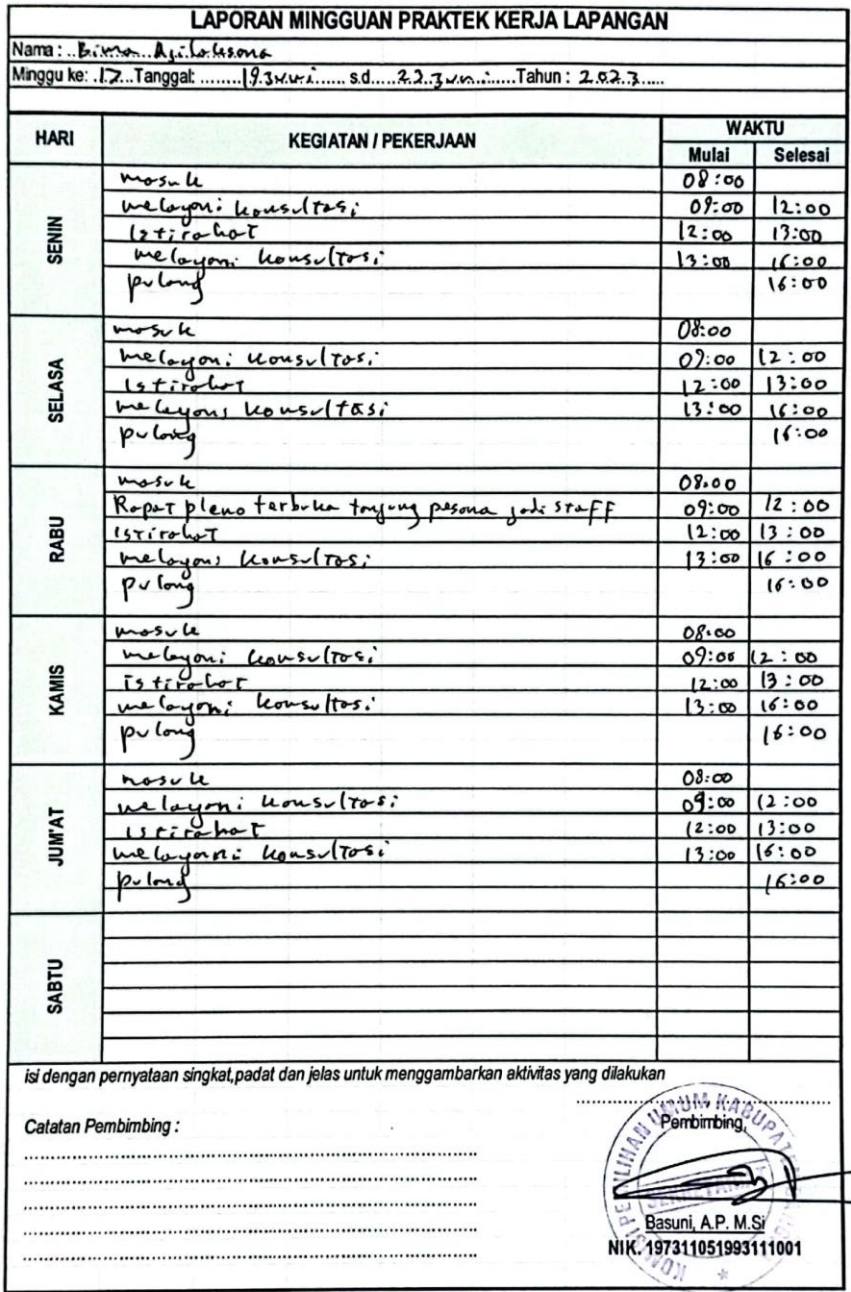 LAPORAN MINGGUAN PRAKTEK KERJA LAPANGAN
Nama : Bima Agilaksana
Minggu ke: 17 Tanggal: 19 Juni s.d 23 Juni Tahun : 2023
HARI KEGIATAN / PEKERJAAN WAKTU
Mulai Selesai
SENIN
masuk 08:00
melayani konsultasi 09:00 12:00
Istirahat 12:00 13:00
melayani konsultasi 13:00 16:00
pulang 16:00
SELASA
masuk 08:00
melayani konsultasi 09:00 12:00
istirahat 12:00 13:00
melayani konsultasi 13:00 16:00
pulang 16:00
RABU
masuk 08.00
Rapat pleno terbuka tanjung pesona jadi staff 09:00 12:00
istirahat 12:00 13:00
melayani konsultasi 13:00 16:00
pulang 16:00
KAMIS
masuk 08:00
melayani konsultasi 09:00 12:00
istirahat 12:00 13:00
melayani konsultasi 13:00 16:00
pulang 16:00
JUM'AT
masuk 08:00
melayani konsultasi 09:00 12:00
istirahat 12:00 13:00
melayani konsultasi 13:00 16:00
pulang 16:00
SABTU
isi dengan pernyataan singkat,padat dan jelas untuk menggambarkan aktivitas yang dilakukan
Catatan Pembimbing :
Pembimbing,
KOMISI PEMILIHAN UMUM KABUPATEN
SEKRETARIAT
Basuni, A.P. M.Si
NIK. 197311051993111001